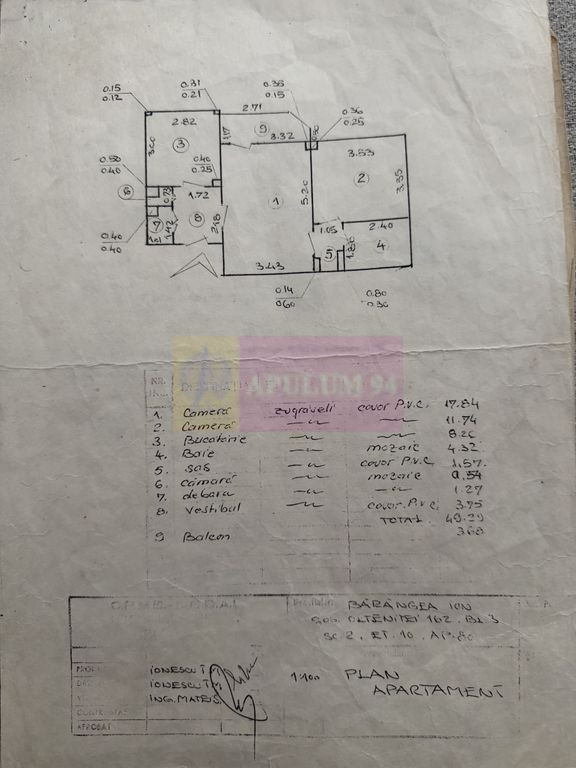 0.15
0.12
0.31
0.21
0.35
0.15
0.36
0.25
2.71
2.82
9
3.32
3.00
3
3.53
0.50
0.40
0.40
0.25
2
3.35
6
1.72
1
5.20
7
8
2.18
1.05
2.40
0.40
0.40
1.42
5
4
3.43
0.14
0.60
0.80
0.30
NR.
DESTINAȚIA
APULUM 94
1. Cameră zugrăveli covor P.V.C. 17.84
2. Cameră —〃— —〃— 11.74
3. Bucătărie —〃— —〃— 8.26
4. Baie —〃— mozaic 4.32
5. sas —〃— covor P.V.C. 1.57
6. cămară —〃— mozaic 0.54
7. debara —〃— —〃— 1.27
8. vestibul —〃— covor P.V.C. 3.75
TOTAL 49.29
9 Balcon 3.68
BĂRÂNGEA ION
ȘOS. OLTENIȚEI 162, BL 3
SC. 2, ET. 10, AP. 80
IONESCU T.
IONESCU T.
ING. MATEIS
1:100 PLAN
APARTAMENT
APROBAT